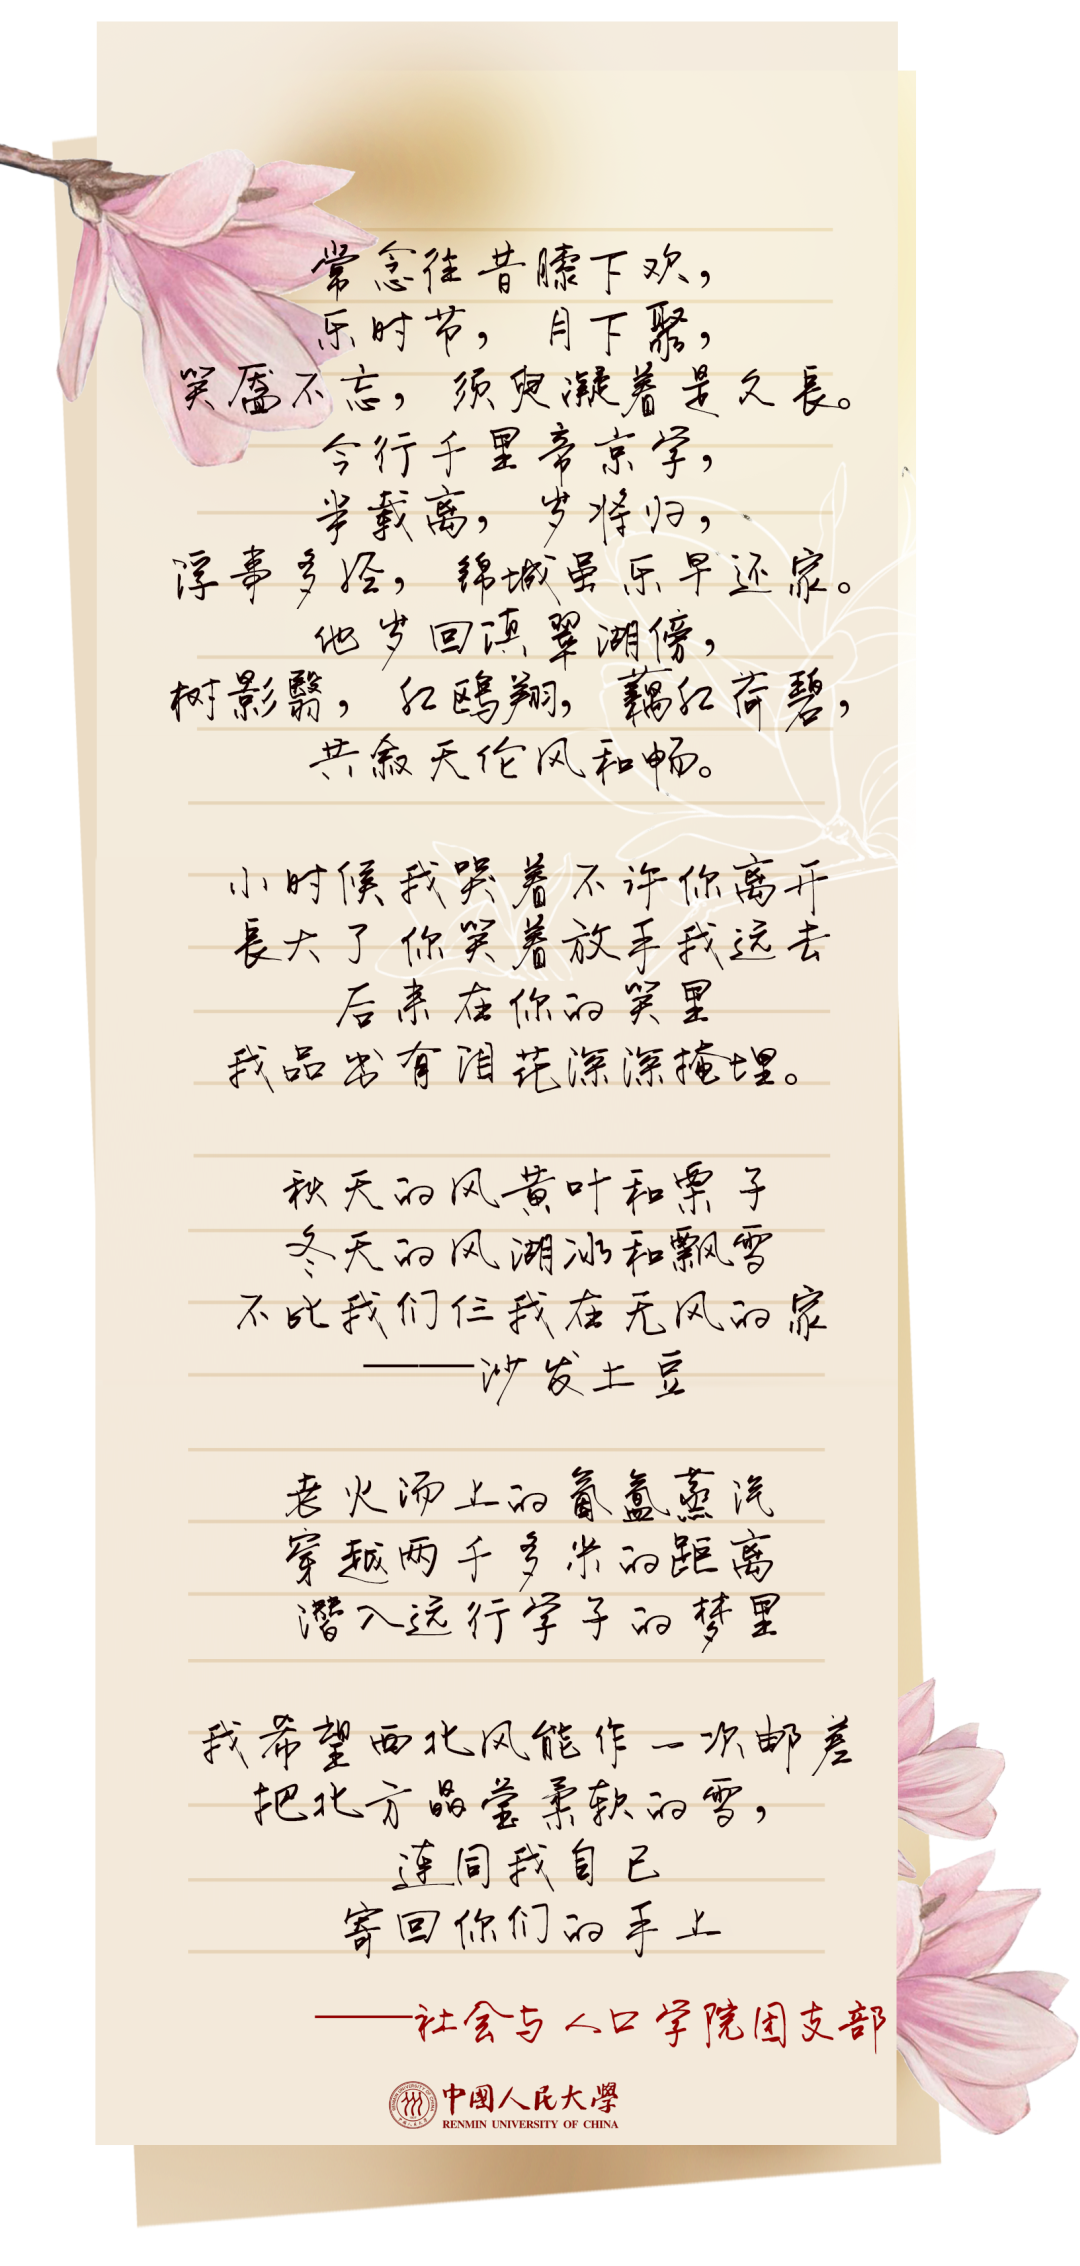 常念往昔膝下欢，
乐时节，月下聚，
笑靥不忘，须臾凝着是久長。
今行千里帝京学，
半载离，岁将归，
浮事多经，锦城虽乐早还家。
他岁回滇翠湖傍，
树影翳，红鸥翔，藕红荷碧，
共叙天伦风和畅。
小时候我哭着不许你离开
長大了你笑着放手我远去
后来在你的笑里
我品出有泪花深深掩埋。
秋天的风黄叶和栗子
冬天的风湖冰和飘雪
不比我们仨我在无风的家
——沙发土豆
老火汤上的氤氲蒸汽
穿越两千多米的距离
潜入远行学子的梦里
我希望西北风能作一次邮差
把北方晶莹柔软的雪，
连同我自己
寄回你们的手上
——社会与人口学院团支部
中國人民大學
RENMIN UNIVERSITY OF CHINA